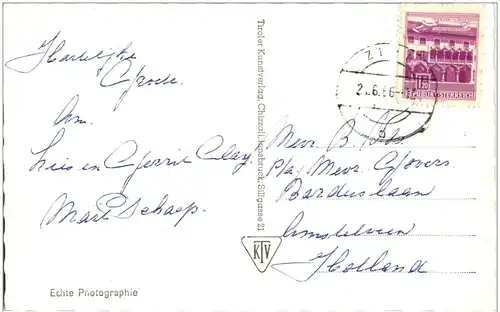 Hartelijke
Groeten.
Am.
Lies en Gerrit Clay.
Mart Schaap.
Tiroler Kunstverlag, Chizzali, Innsbruck, Sillgasse 21
KTV
Echte Photographie
REPUBLIK ÖSTERREICH
2 .6.66
Mevr. B.
p/a Mevr. Govers.
Amstelveen
Holland